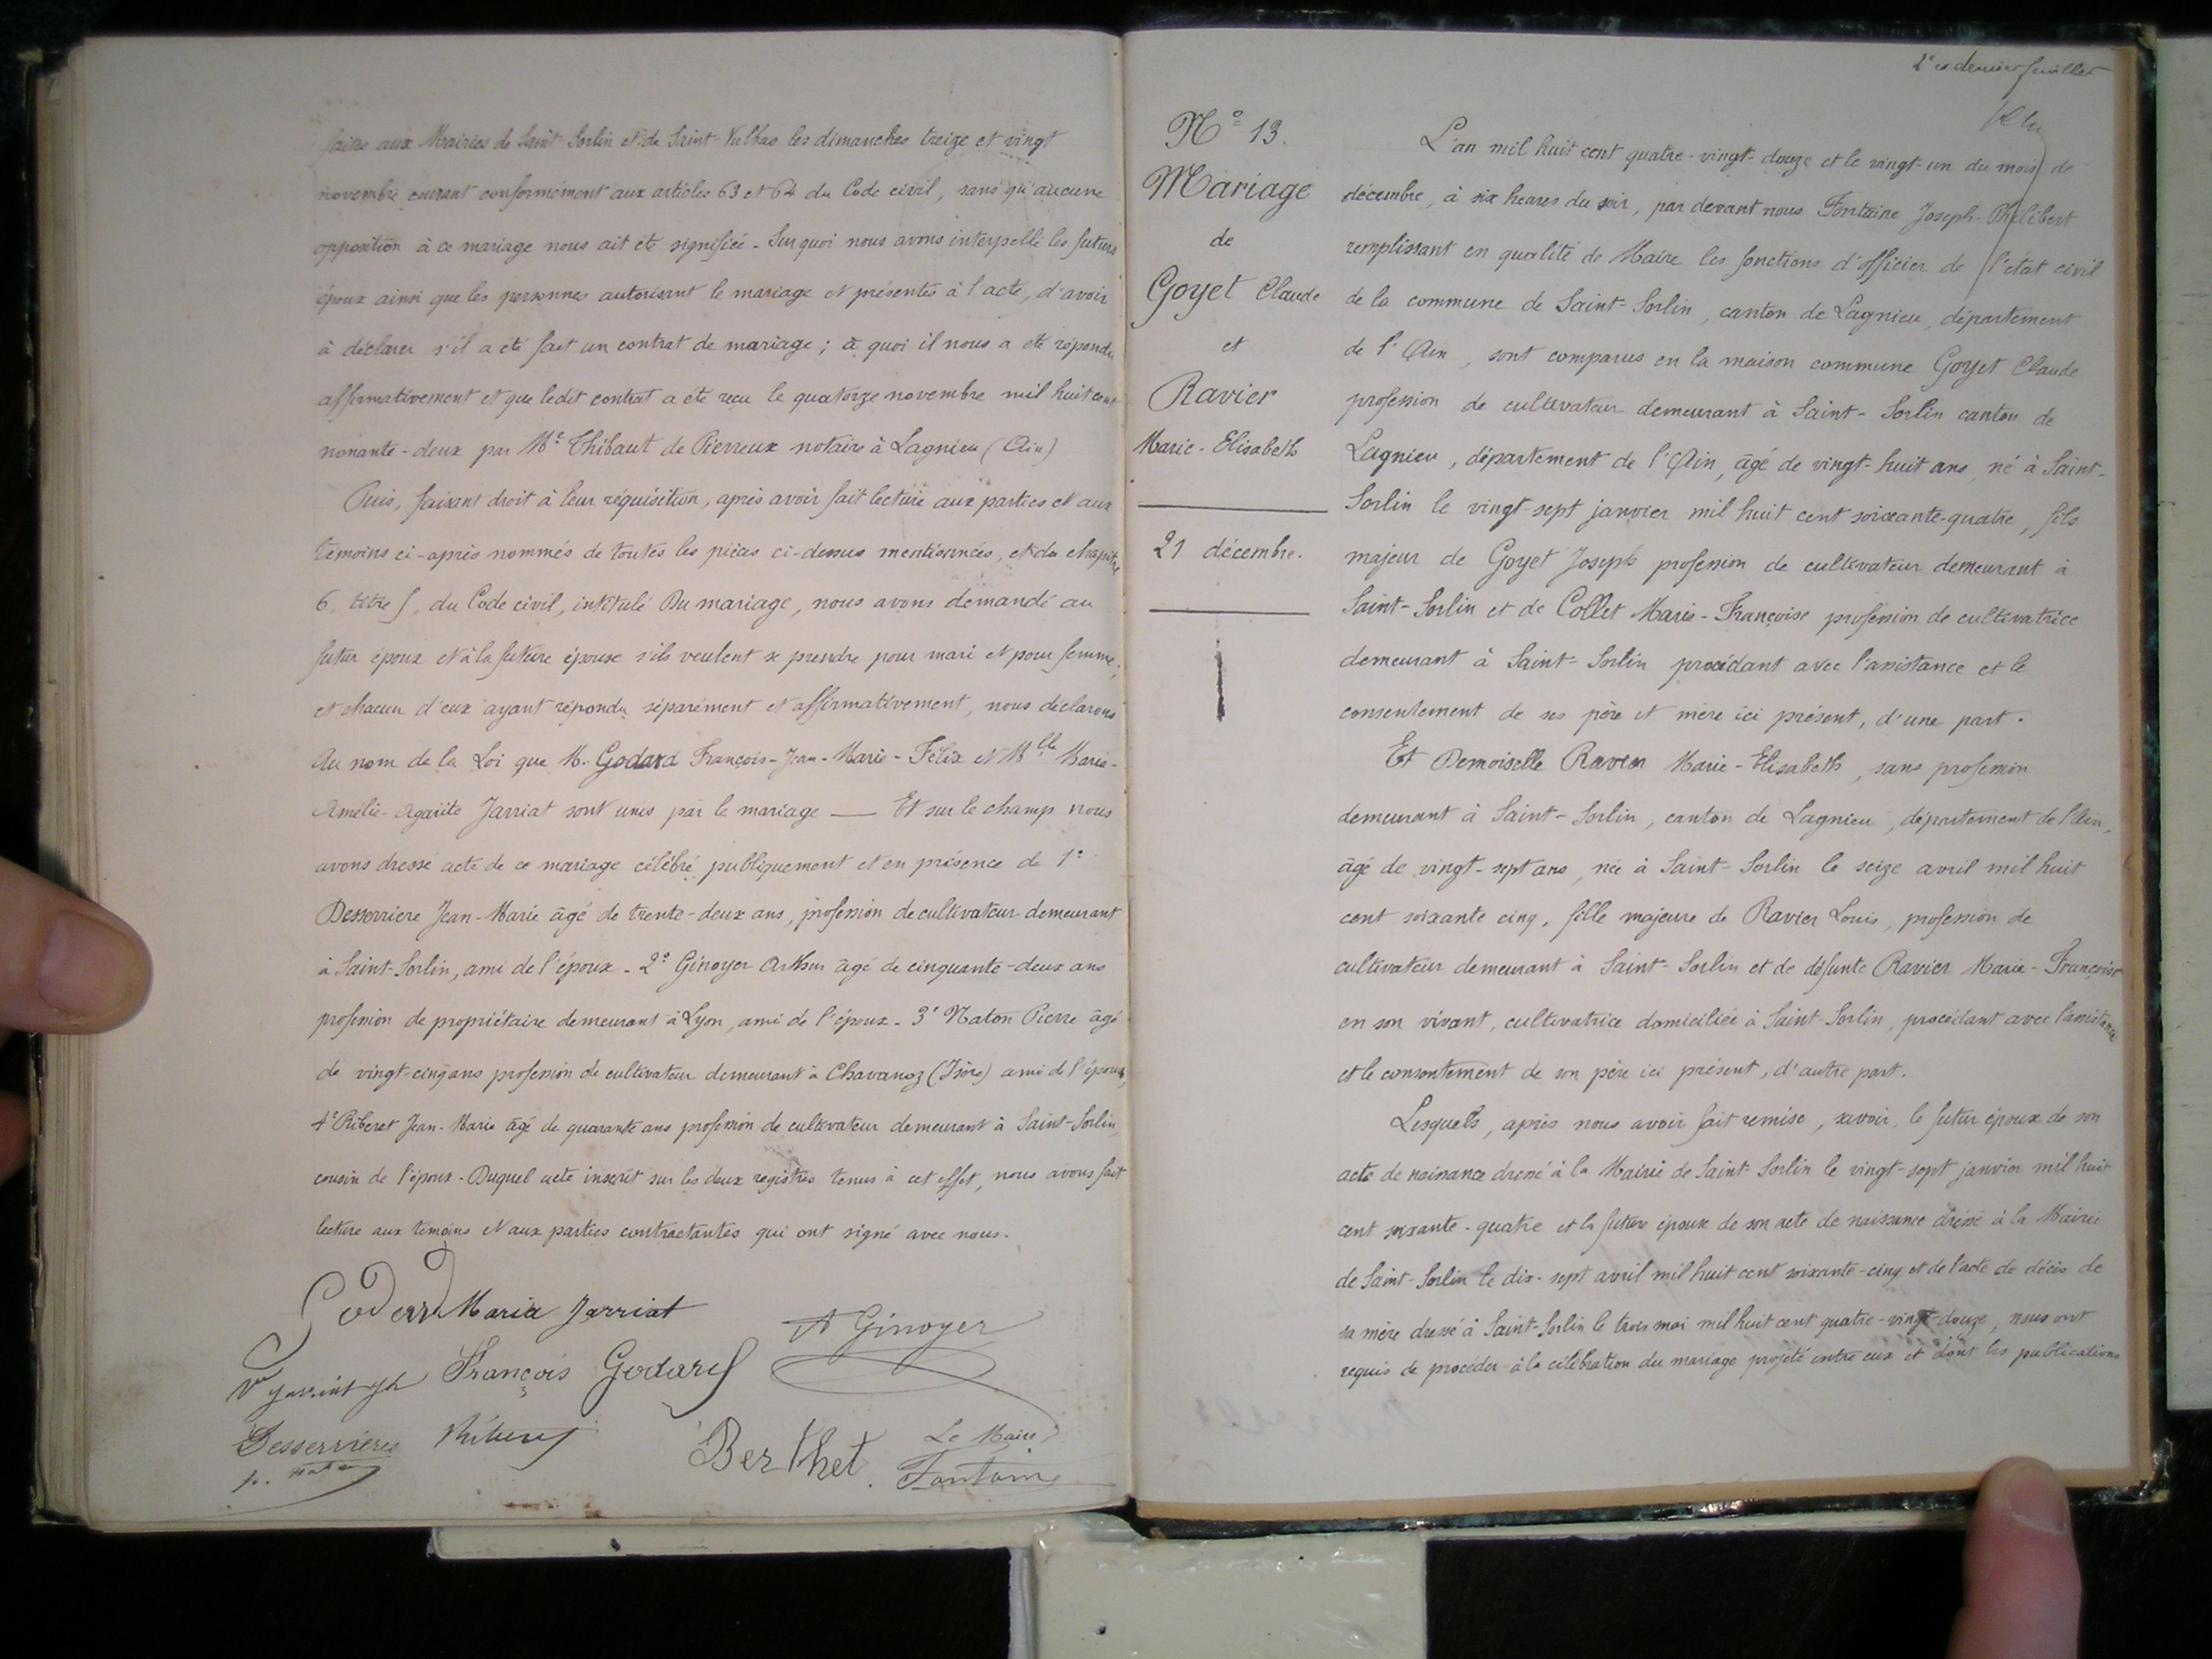 faites aux Mairies de Saint-Sorlin et de Saint-Vulbas les dimanches treize et vingt
novembre courant conformément aux articles 63 et 64 du Code civil, sans qu'aucune
opposition à ce mariage nous ait été signifiée - Sur quoi nous avons interpellé les futurs
époux ainsi que les personnes autorisant le mariage et présentes à l'acte, d'avoir
à déclarer s'il a été fait un contrat de mariage ; à quoi il nous a été répondu
affirmativement et que ledit contrat a été reçu le quatorze novembre mil huit cent
nonante-deux par Me Thibaut de Pierreux notaire à Lagnieu (Ain)
Puis, faisant droit à leur réquisition, après avoir fait lecture aux parties et aux
témoins ci-après nommés de toutes les pièces ci-dessus mentionnées, et du chapitre
6, titre 5, du Code civil, intitulé Du mariage, nous avons demandé au
futur époux et à la future épouse s'ils veulent se prendre pour mari et pour femme ;
et chacun d'eux ayant répondu séparément et affirmativement, nous déclarons
Au nom de la Loi que M. Godard François-Jean-Marie-Félix et Mlle Marie-
Amélie-Agarite Jarriat sont unis par le mariage — Et sur le champ nous
avons dressé acte de ce mariage célébré publiquement et en présence de 1°
Desserriere Jean-Marie âgé de trente-deux ans, profession de cultivateur demeurant
à Saint-Sorlin, ami de l'époux - 2° Ginoyer Arthur âgé de cinquante-deux ans
profession de propriétaire demeurant à Lyon, ami de l'époux - 3° Naton Pierre âgé
de vingt-cinq ans profession de cultivateur demeurant à Chavanoz (Isère) ami de l'époux,
4° Riberet Jean-Marie âgé de quarante ans profession de cultivateur demeurant à Saint-Sorlin,
cousin de l'époux - Duquel acte inscrit sur les deux registres tenus à cet effet, nous avons fait
lecture aux témoins et aux parties contractantes qui ont signé avec nous.
Godard Maria Jarriat A Ginoyer
François Godard
Desserrières Berthet Le Maire
Fontaine
2e et dernier feuillet
N° 13.
Mariage
de
Goyet Claude
et
Ravier
Marie-Elisabeth
21 décembre.
L'an mil huit cent quatre-vingt-douze et le vingt-un du mois de
décembre, à six heures du soir, par devant nous Fontaine Joseph-Philibert
remplissant en qualité de Maire les fonctions d'officier de l'état civil
de la commune de Saint-Sorlin, canton de Lagnieu, département
de l'Ain, sont comparus en la maison commune Goyet Claude
profession de cultivateur demeurant à Saint-Sorlin canton de
Lagnieu, département de l'Ain, âgé de vingt-huit ans, né à Saint-
Sorlin le vingt-sept janvier mil huit cent soixante-quatre, fils
majeur de Goyet Joseph profession de cultivateur demeurant à
Saint-Sorlin et de Collet Marie-Françoise profession de cultivatrice
demeurant à Saint-Sorlin procédant avec l'assistance et le
consentement de ses père et mère ici présent, d'une part.
Et Demoiselle Ravier Marie-Elisabeth, sans profession
demeurant à Saint-Sorlin, canton de Lagnieu, département de l'Ain,
âgé de vingt-sept ans, née à Saint-Sorlin le seize avril mil huit
cent soixante cinq, fille majeure de Ravier Louis, profession de
cultivateur demeurant à Saint-Sorlin et de défunte Ravier Marie-Françoise
en son vivant, cultivatrice domiciliée à Saint-Sorlin, procédant avec l'assistance
et le consentement de son père ici présent, d'autre part.
Lesquels, après nous avoir fait remise, savoir, le futur époux de son
acte de naissance dressé à la Mairie de Saint Sorlin le vingt-sept janvier mil huit
cent soixante-quatre et la future épouse de son acte de naissance dressé à la Mairie
de Saint-Sorlin le dix-sept avril mil huit cent soixante-cinq et de l'acte de décès de
sa mère dressé à Saint-Sorlin le trois mai mil huit cent quatre-vingt-douze, nous ont
requis de procéder à la célébration du mariage projeté entre eux et dont les publications